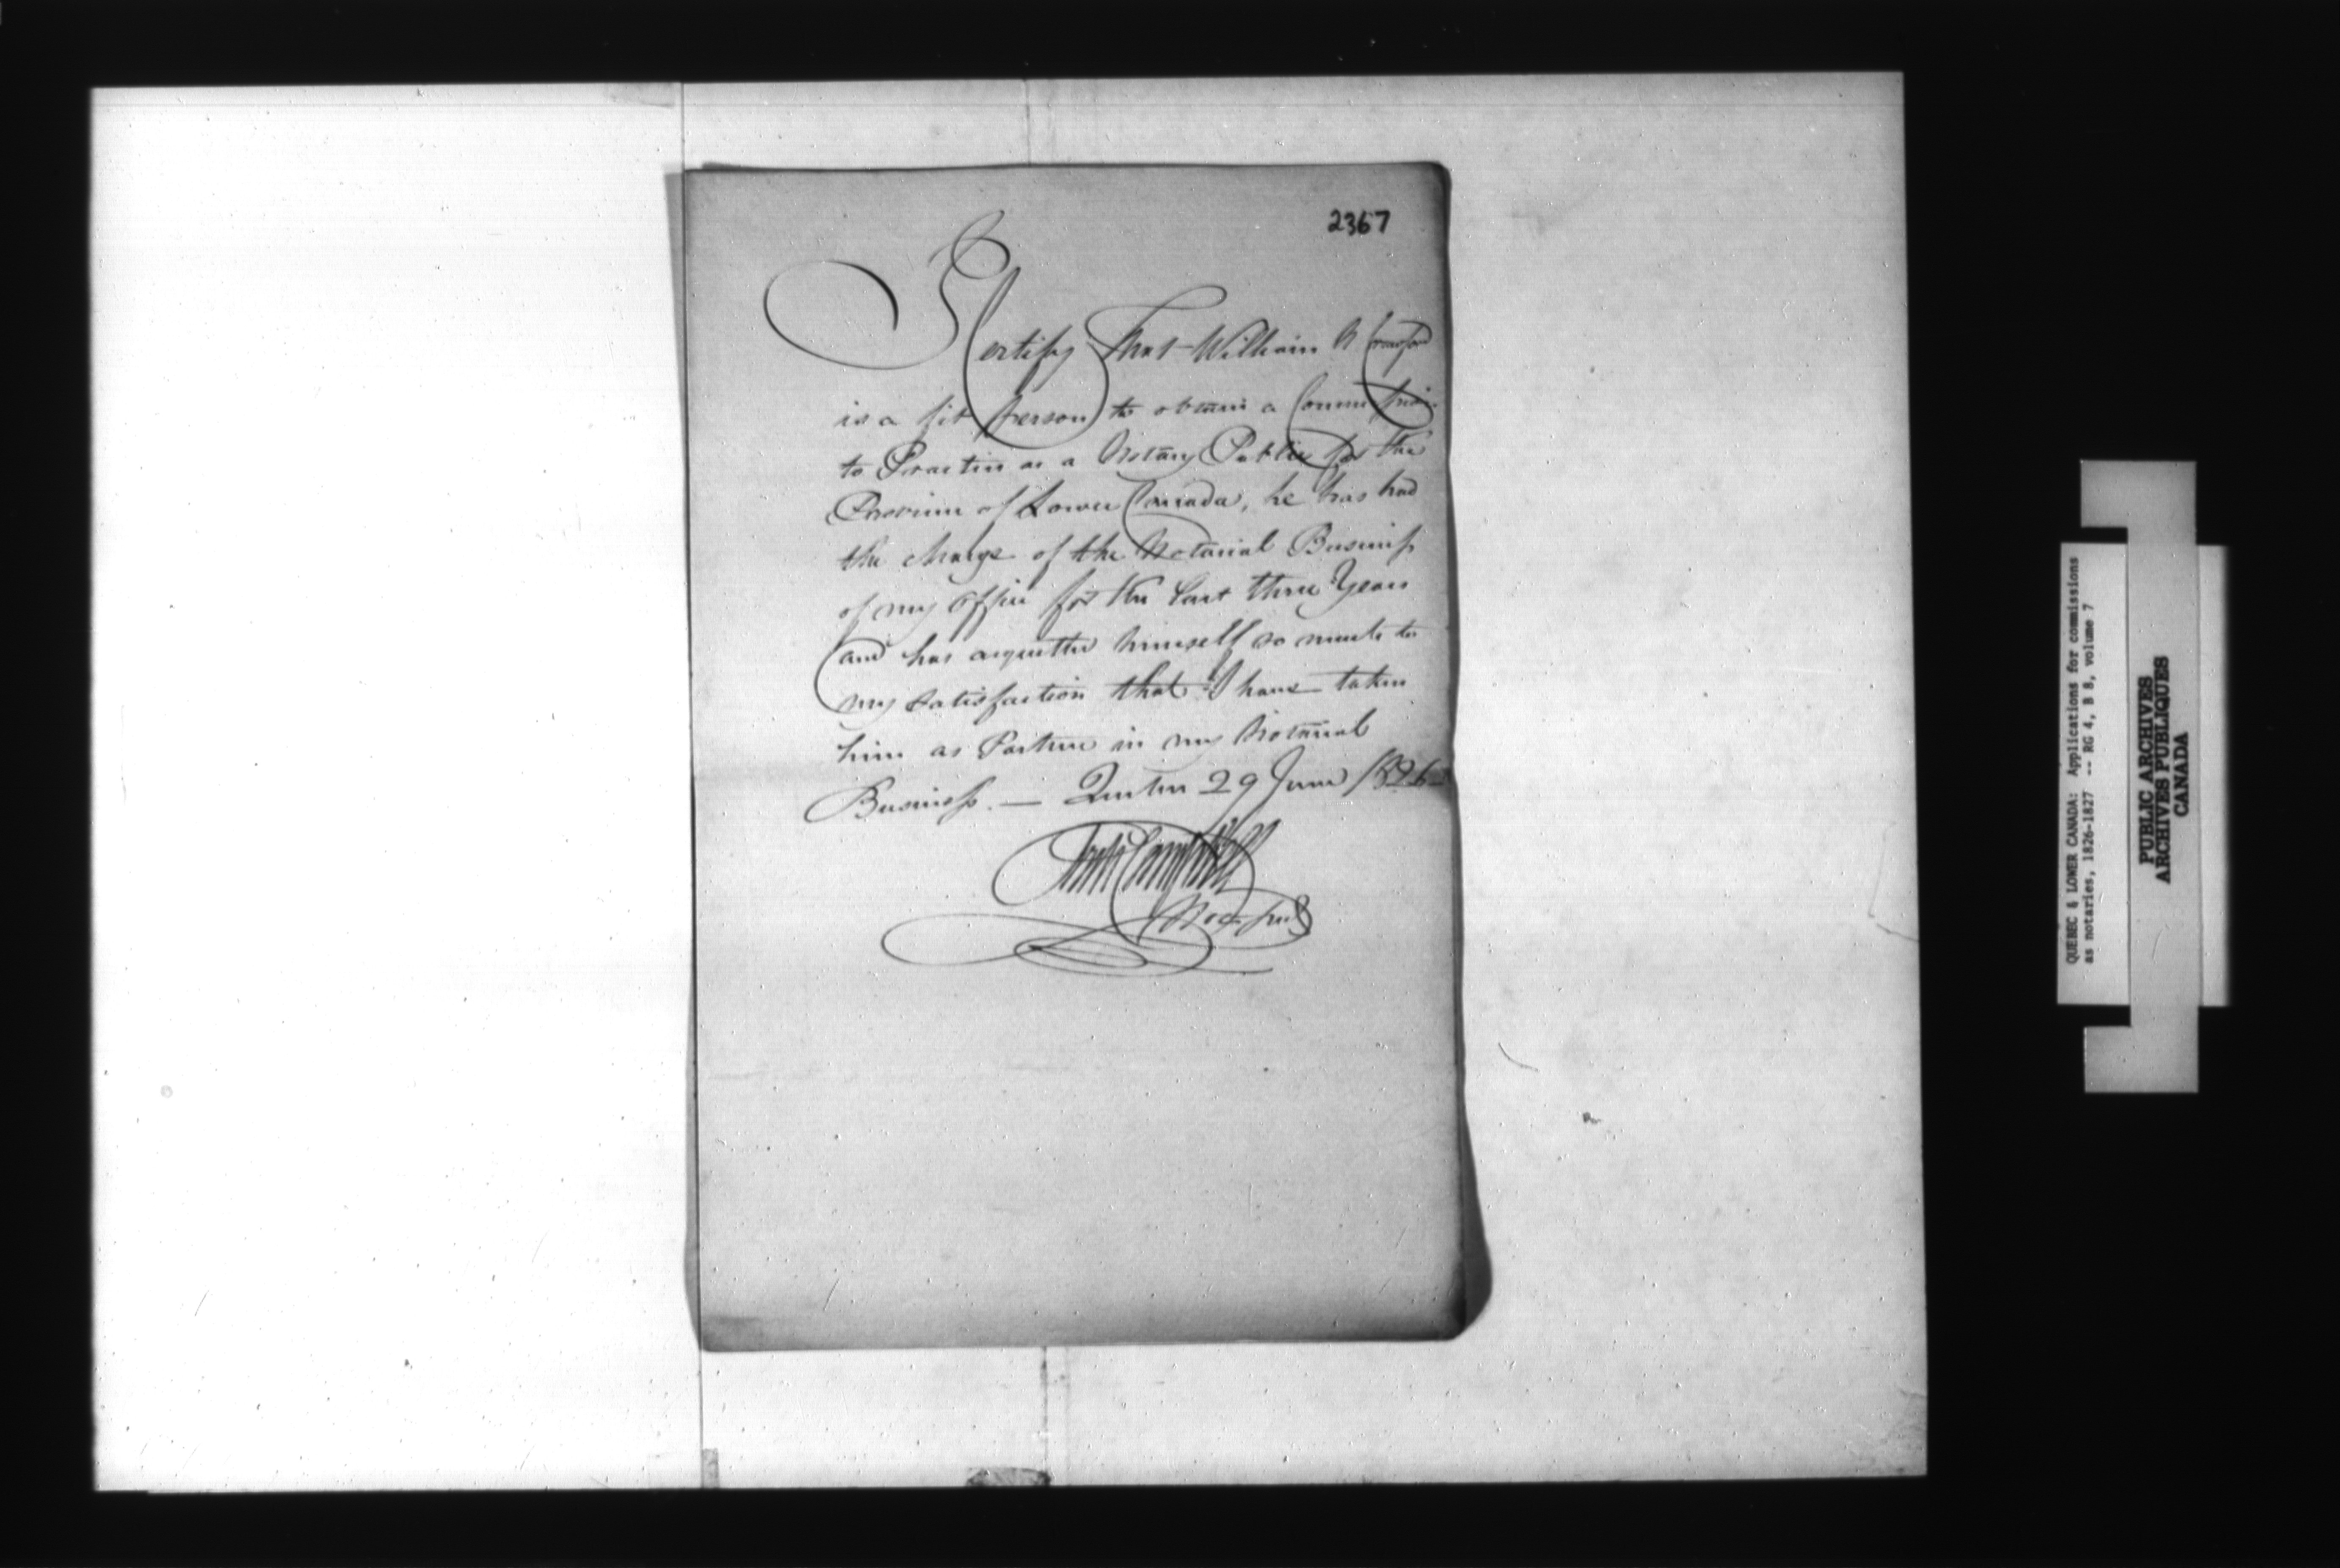 2367
I Certify that William Crawford
is a fit person to obtain a Commission
to Practice as a Notary Public for the
Province of Lower Canada, he has had
the charge of the Notarial Business
of my office for the last three Years
and has acquitted himself so much to
my satisfaction that I have taken
him as Partner in my Notarial
Business. — Quebec 29 June 1826
Archd Campbell
Not. Pub
QUEBEC & LOWER CANADA: Applications for commissions
as notaries, 1826-1827 -- RG 4, B 8, volume 7
PUBLIC ARCHIVES
ARCHIVES PUBLIQUES
CANADA